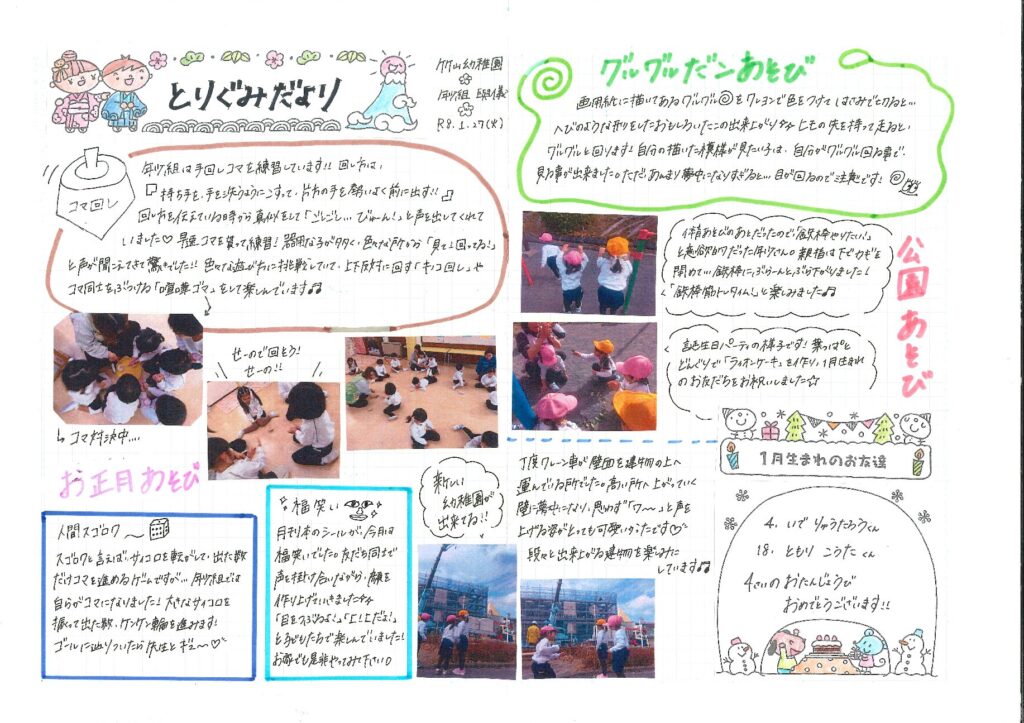 とりぐみだより
竹山幼稚園
年少組 興儀
R8.1.27(火)
コマ回し
年少組は手回しコマを練習しています!! 回し方は、
『持ち手を、手を洗うようにこすって、片方の手を勢いよく前に出す!!』
回し方を伝えている時から真似をして「ごしごし…びゅーん!」と声を出してくれて
いました♡ 早速コマを貰って練習! 器用な子が多く、色々な所から「見て!回ってる!」
と声が聞こえてきて驚きでした!! 色々な遊び方に挑戦していて、上下反対に回す「キノコ回し」や
コマ同士をぶつける「喧嘩ゴマ」をして楽しんでいます♫
↳ コマ対決中….
せーので回そう!
せーの!!
お正月あそび
人間スゴロク
スゴロクと言えば、サイコロを転がして、出た数
だけコマを進めるゲームですが… 年少組では
自らがコマになりました! 大きなサイコロを
振って出た数、ケンケン輪を進みます!
ゴールに辿りついたら先生とギュ〜♡
福笑い
月刊本のシールが、今月は
福笑いでした☆友だち同士で
声を掛け合いながら、顔を
作り上げていきました☆
「目をつぶるよ!」「上!上だよ!」
と子どもたちで楽しんでいました!
お家でも是非やってみて下さい○
グルグルだこあそび
画用紙に描いてあるグルグルをクレヨンで色をつけて はさみで切ると…
へびのような形りをしたおもしろいたこの出来上がり☆ ヒモの先を持って走ると、
グルグルと回ります! 自分の描いた模様が見たい子は、自分がグルグル回る事で、
見る事が出来ました○ただ、あんまり夢中になりすぎると… 目が回るのでご注意です!
公園あそび
体操あそびのあとだったので、「鉄棒やりたい!」
と意欲的だった年少さん○ 親指は下でカギを
閉めて… 鉄棒に、ぶらーんとぶら下がりました!
「鉄棒筋トレタイム!」と楽しみました♫
誕生日パーティの様子です! 葉っぱと
どんぐりで「ライオンケーキ」を作り、1月生まれ
のお友だちをお祝いしました☆
新しい
幼稚園が
出来てる!!
丁度クレーン車が壁面を建物の上へ
運んでいる所でした○高い所へ上がっていく
壁に夢中になり、思わず「ワ〜」と声を
上げる姿がとっても可愛いかったです♡
段々と出来上がる建物を楽しみに
しています♫
1月生まれのお友達
4. いで りゅうたろうくん
18. ともり こうたくん
4さいのおたんじょうび
おめでとうございます!!